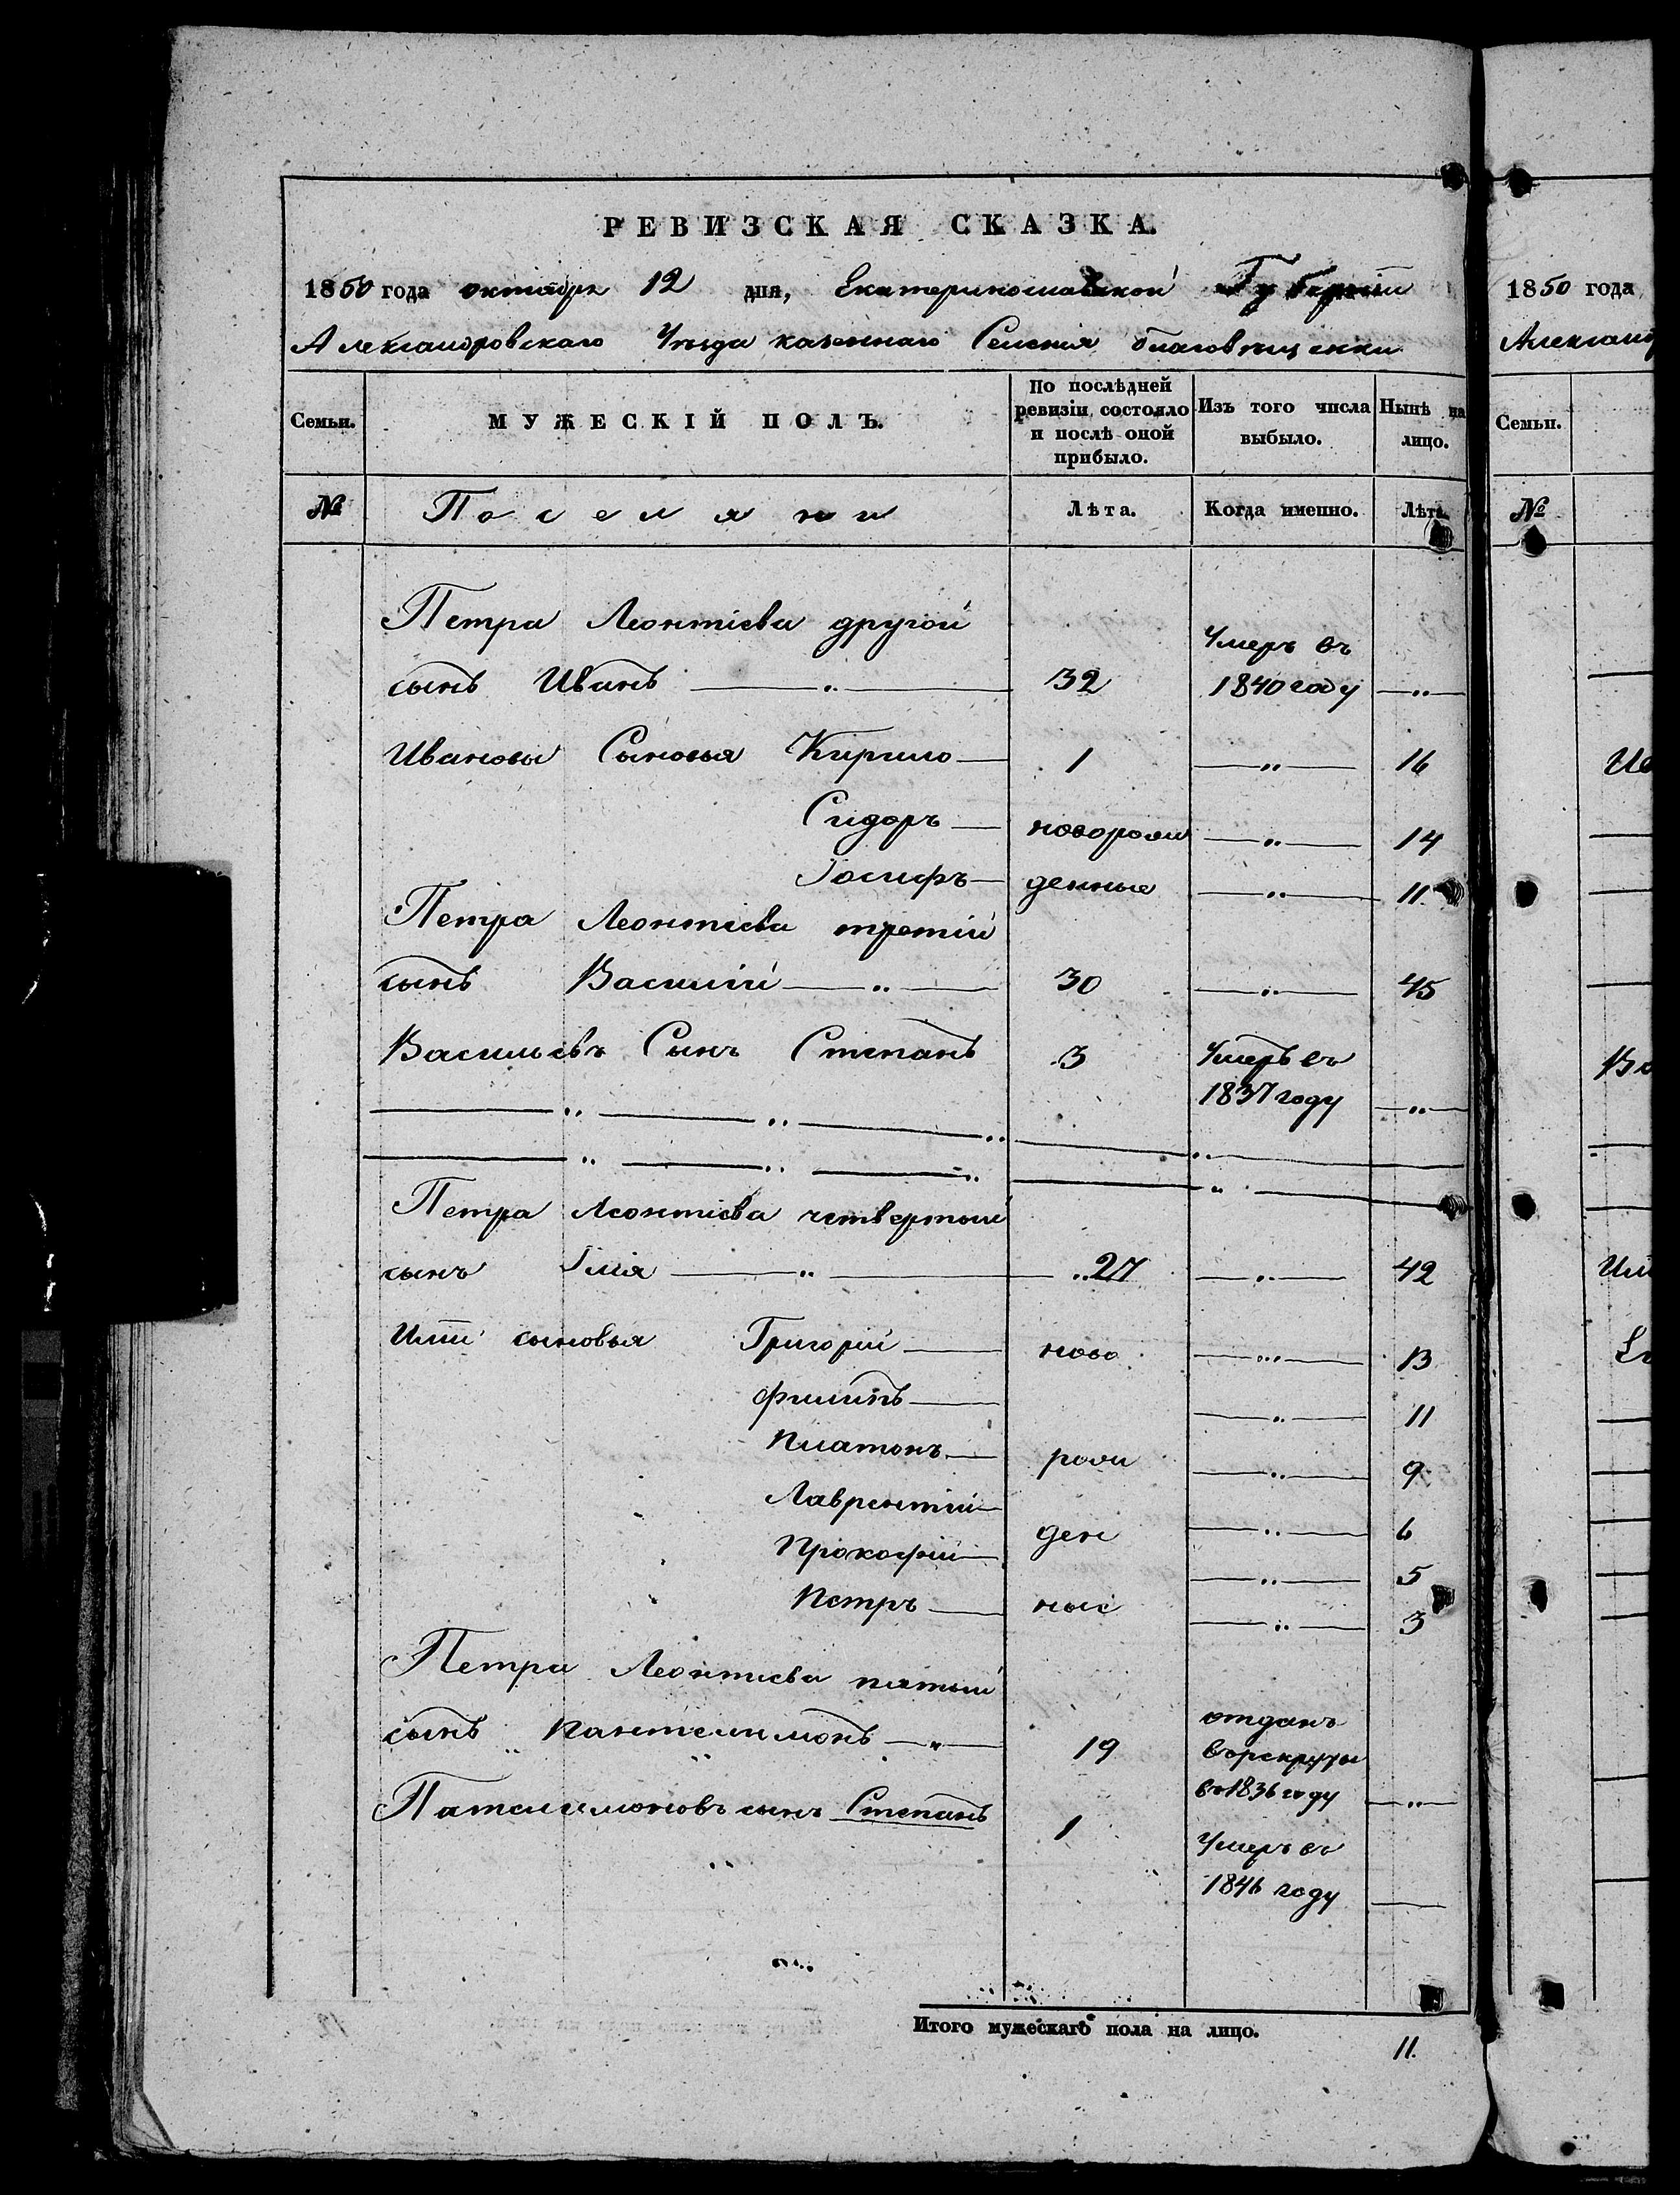 РЕВИЗСКАЯ СКАЗКА.
1850 года октября 12 дня, Екатеринославской Губернии
Александровскаго Уезда казеннаго Селения благовещенки
Семьи. МУЖЕСКІЙ ПОЛЪ. По послѣдней ревизіи состояло и послѣ оной прибыло. Изъ того числа выбыло. Нынѣ на лицо.
№ Поселяни Лѣта. Когда именно. Лѣта.
Петра Леонтіева другой
сынъ Иванъ 32 Умеръ въ 1840 году
Ивановы Сыновья Кирило 1 16
Сидоръ новорож 14
Іосифъ денные 11
Петра Леонтіева третій
сынъ Василій 30 45
Васильевъ Сынъ Степанъ 3 Умеръ въ
1837 году
Петра Леонтіева четвертый
сынъ Илія 27 42
Иліи сыновья Григорій ново 13
Филипъ 11
Платонъ рож 9
Лаврентій 6
Прокофій ден 5
Петръ ные 3
Петра Леонтиева пятый
сынъ Пантелимонъ 19 отданъ
въ рекруты
въ 1836 году
Пателимоновъ сынъ Степанъ 1 Умеръ въ
1846 году
Итого мужескаго пола на лицо. 11.
1850 года
Александ
Семьи.
№
Ив
Ва
Или